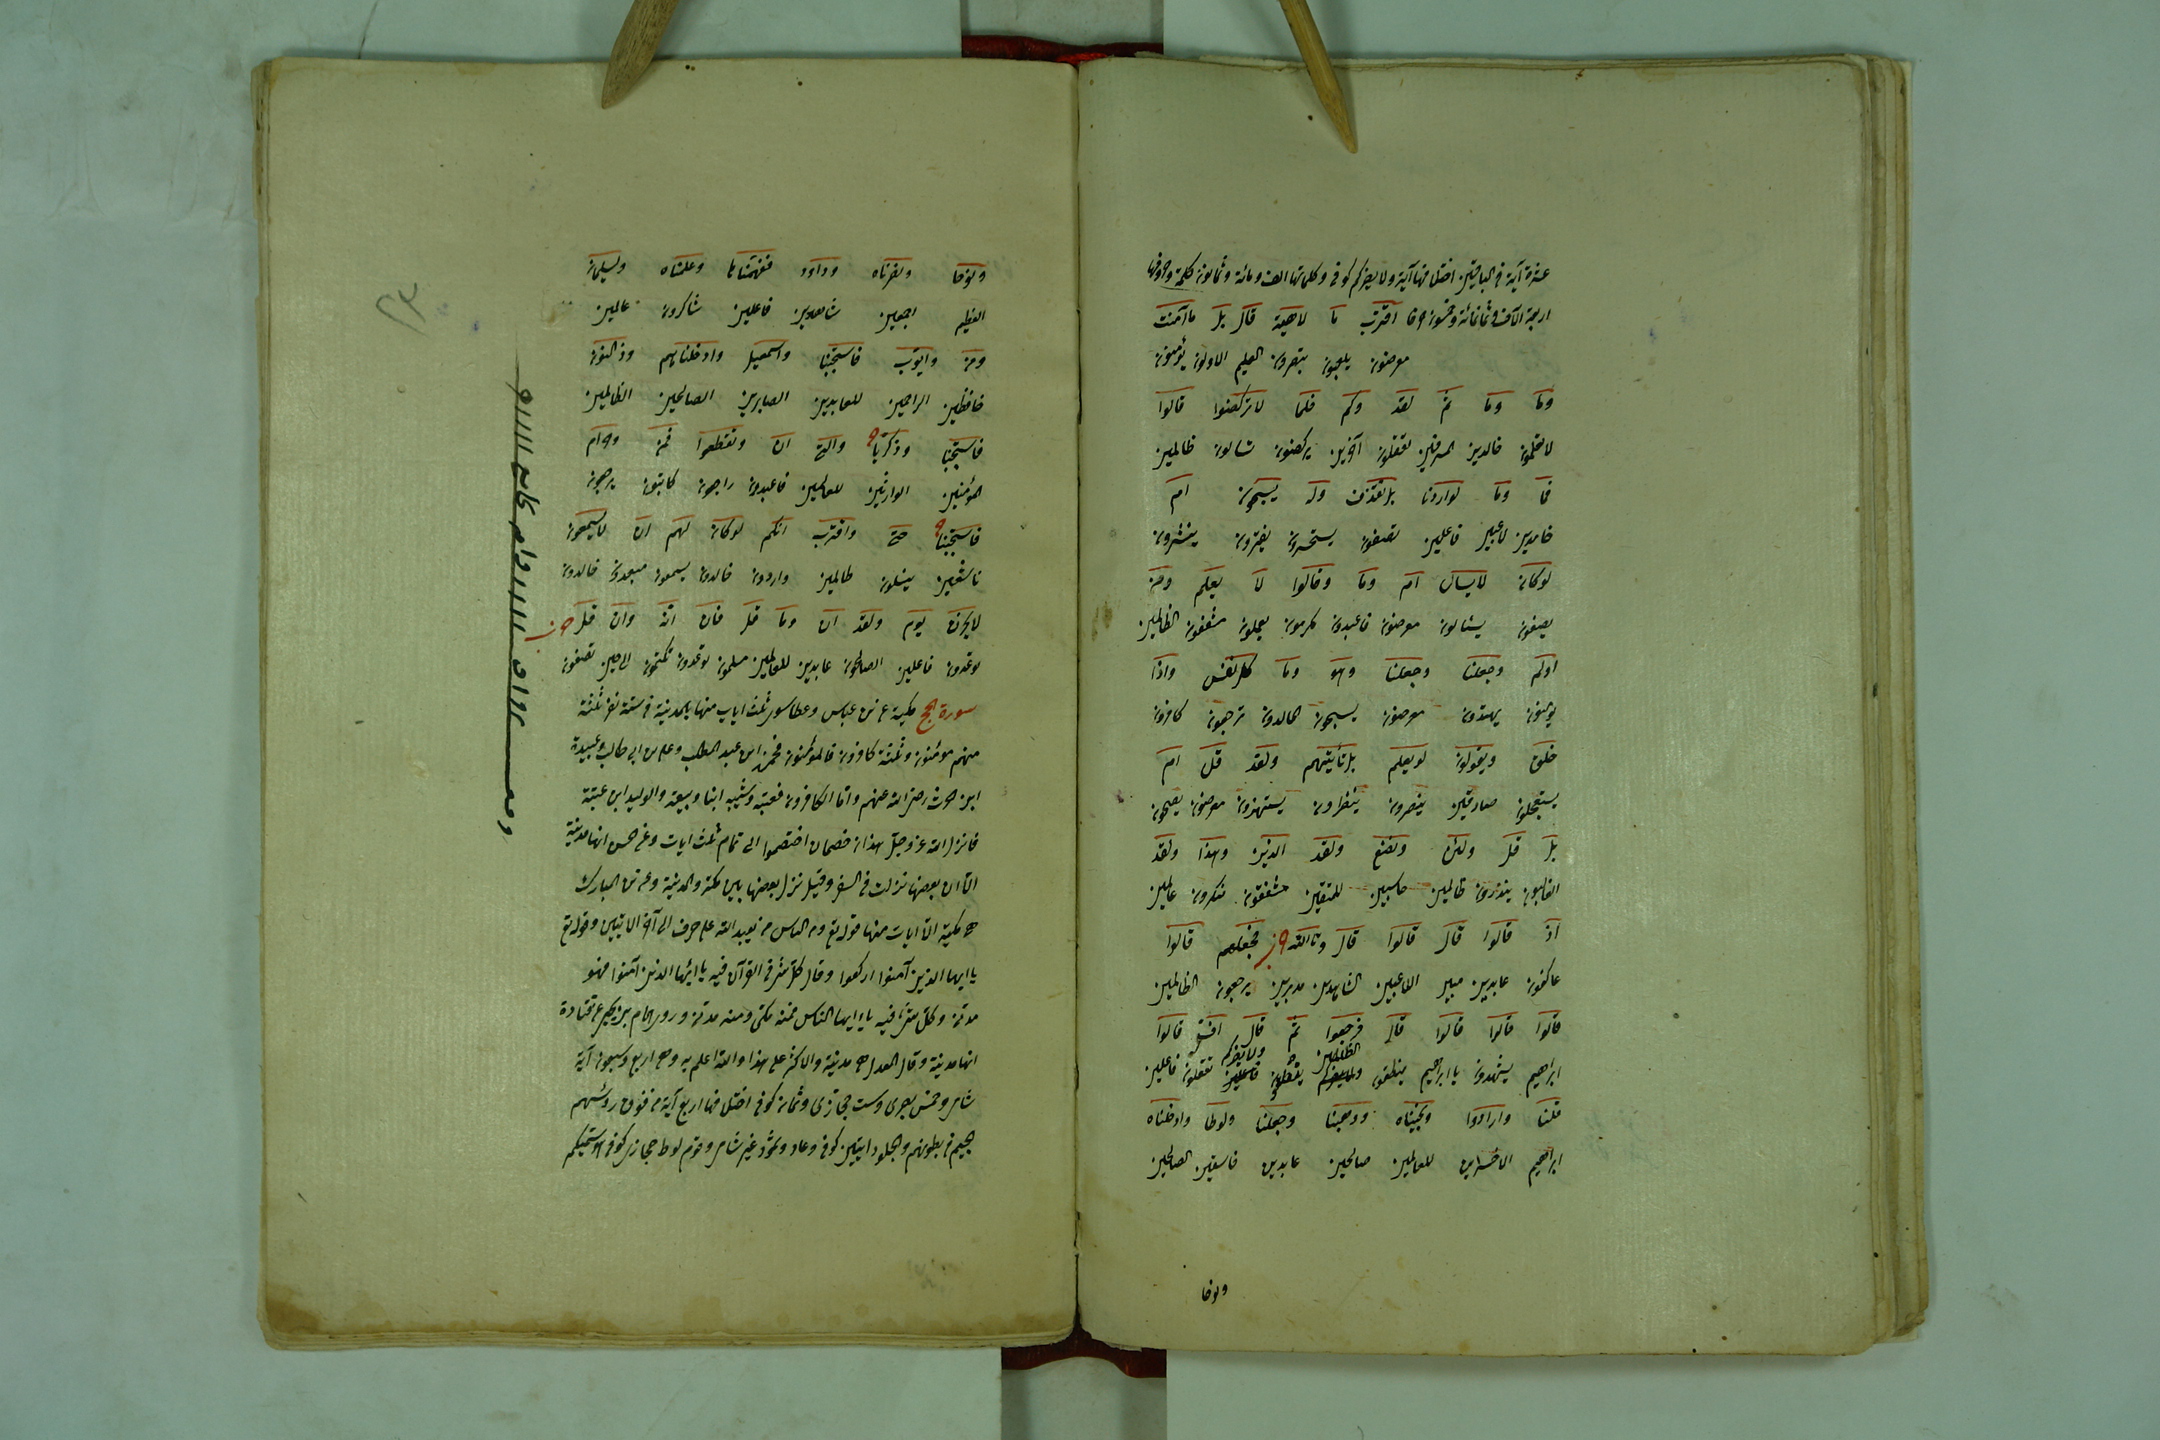 عشرة آية في الباقين اختلافها آية ولا يضركم كوفي وكلماتها الف ومائة وثمانون كلمة وحروفها
اربعة الآف وثمانمائة وخمسون حرفا اقترب ما لاهية قال بل ما آمنت
معرضون يلعبون تبصرون العليم الاولون يؤمنون
وما وما ثم لقد وكم فلما لا تركضوا قالوا
لا تعلمون خالدين المسرفين تعقلون آخرين يركضون تسالون ظالمين
فما وما لو اردنا بل نقذف وله يسبحون ام
خامدين لاعبين فاعلين تصفون يستحسرون يفترون ينشرون
لو كان لا يسال ام وما وقالوا لا يعلم ومن
يصفون يسئالون معرضون فاعبدون مكرمون يعملون مشفقون الظالمين
اولم وجعلنا وجعلنا وهو وما كل نفس واذا
يؤمنون يهتدون معرضون يسبحون الخالدون ترجعون كافرون
خلق ويقولون لو يعلم بل تأتيهم ولقد قل ام
يستعجلون صادقين ينصرون ينظرون يستهزؤن معرضون يصحبون
بل قل ولئن ونضع ولقد الذين وهذا ولقد
الغالبون ينذرون ظالمين حاسبين للمتقين مشفقون منكرون عالمين
اذ قالوا قال قالوا قال وتالله فجعلهم قالوا
عاكفون عابدين مبين اللاعبين الشاهدين مدبرين يرجعون الظالمين
قالوا قالوا قالوا قال فرجعوا ثم قال اف قالوا
الظالمون ولا يضركم
ابراهيم يشهدون يا ابراهيم ينطقون ينطقون تعقلون فاعلين
قلنا وارادوا ونجيناه ووهبنا وجعلنا ولوطا وادخلناه
ابراهيم الاخسرين للعالمين صالحين عابدين فاسقين الصالحين
ونوحا
ونوحا ونصرناه وداود ففهمناها وعلمناه ولسليمان
العظيم اجمعين شاهدين فاعلين شاكرون عالمين
ومن وايوب فاستجبنا واسمعيل وادخلناهم وذا النون
حافظين الراحمين للعابدين الصابرين الصالحين الظالمين
فاستجبنا وزكريا والتي ان وتقطعوا فمن وحرام
المؤمنين الوارثين للعالمين فاعبدون راجعون كاتبون يرجعون
فاستجبنا حتى واقترب انكم لو كان لهم ان لا يسمعون
خاشعين ينسلون ظالمين واردون خالدون يسمعون مبعدون خالدون
لا يحزن يوم ولقد ان وما قل فان انه وان قل
توعدون فاعلين الصالحون عابدين للعالمين مسلمون توعدون تكتمون الى حين تصفون
سورة الحج مكية عن ابن عباس وعطا سوى ثلث ايات منها بالمدينة في ستة نفر ثلثة
منهم مؤمنون وثلثة كافرون فالمؤمنون حمزة ابن عبد المطلب وعلي بن ابي طالب وعبيدة
ابن حرث رضي الله عنهم واما الكافرون فعتبة وشيبه ابنا ربيعة والوليد ابن عتبة
فانزل الله عز وجل هذان خصمان اختصموا الى تمام ثلث ايات وعن حسن انها مدنية
الا ان بعضها نزلت في السفر وقيل نزل بعضها بين مكة والمدينة وعن ابن المبارك
هي مكية الا ايات منها قوله تع ومن الناس من يعبد الله على حرف الى آخر الايتين وقوله تع
يا ايها الذين آمنوا اركعوا وقال كل شئ في القرآن فيه يا ايها الذين آمنوا فهو
مدني وكل شئ فيه يا ايها الناس فمنه مكي ومنه مدني وروى همام بن يحيى عن قتادة
انها مدنية وقال المعدل هي مدنية والاكثر على هذا والله اعلم به وهي اربع وسبعون آية
شامي وخمس بصري وست حجازي وثمان كوفي اختلافها اربع آية من فوق رؤسهم
الحميم في بطونهم والجلود ايتين كوفي وعاد وثمود غير شامي وقوم لوط حجازي كوفي هو سميكم